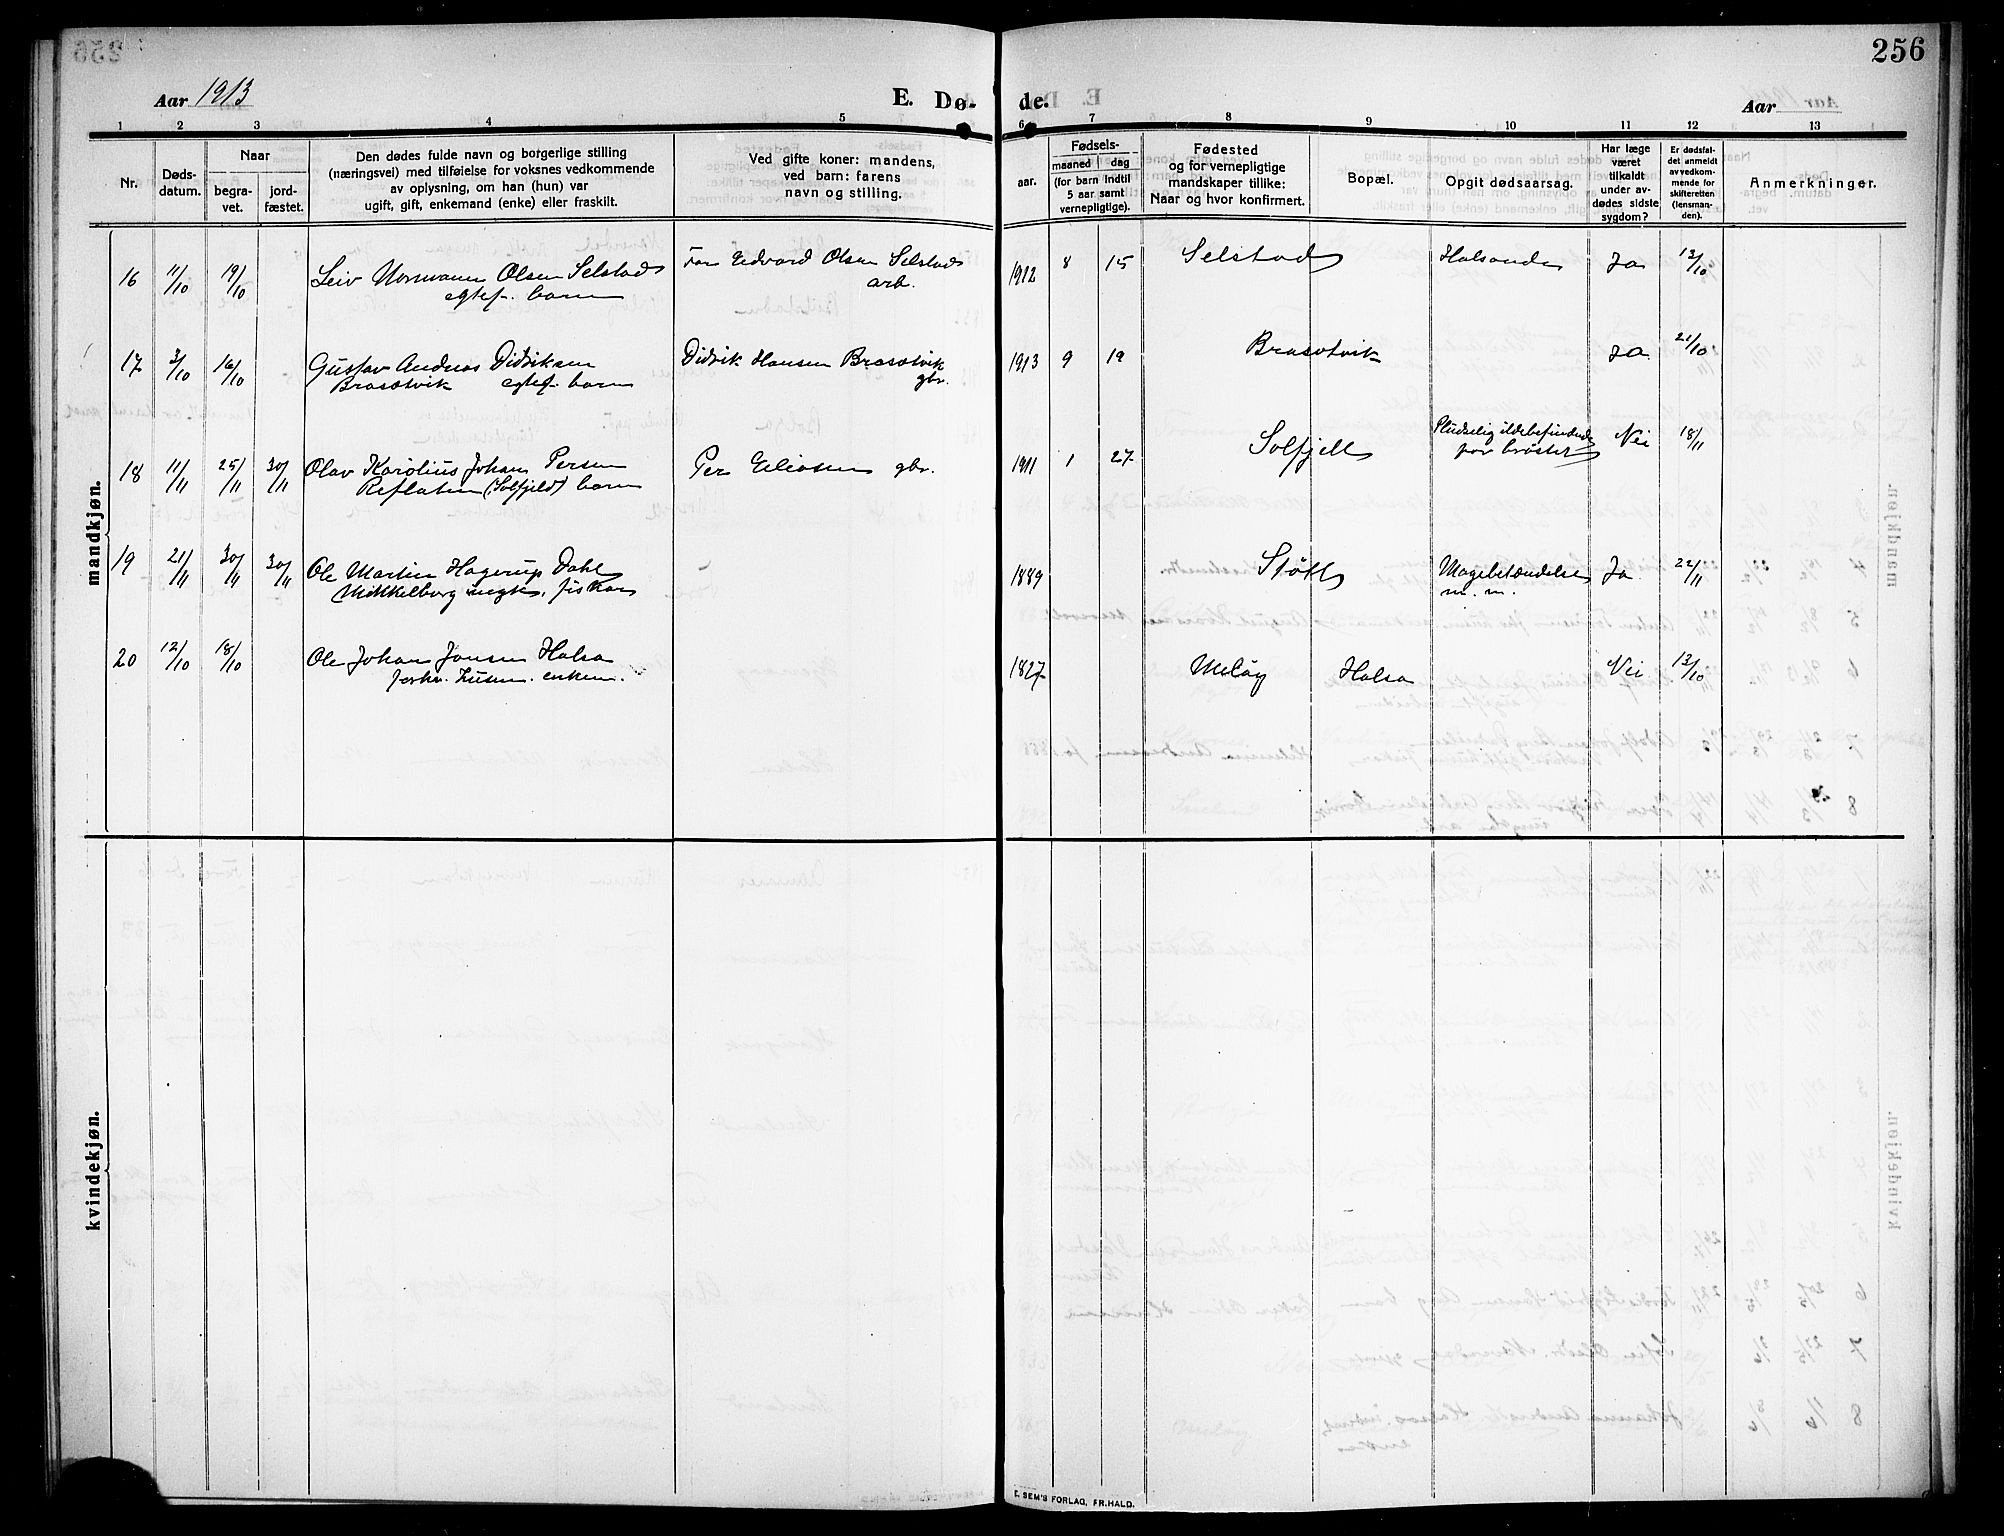 256
Aar 1913
E. Dø-
de.
Aar
1 2 3 4 5 6 7 8 9 10 11 12 13
Nr.
Døds-
datum.
Naar
begra-
vet.
jord-
fæstet.
Den dødes fulde navn og borgerlige stilling
(næringsvei) med tilføielse for voksnes vedkommende
av oplysning, om han (hun) var
ugift, gift, enkemand (enke) eller fraskilt.
Ved gifte koner: mandens,
ved barn: farens
navn og stilling.
Fødsels-
aar.
maaned dag
(for barn indtil
5 aar samt
vernepligtige).
Fødested
og for vernepligtige
mandskaper tillike:
Naar og hvor konfirmert.
Bopæl.
Opgit dødsaarsag.
Har læge
været
tilkaldt
under av-
dødes sidste
sygdom?
Er dødsfal-
det anmeldt
av vedkom-
mende for
skifteretten
(lensman-
den).
Anmerkninger.
mandkjøn.
16 11/10 19/10 Leiv Normann Olsen Selstad Far Edvard Olsen Selstad 1912 8 15 Selstad Halsonde Ja 12/10
egtef. barn arb.
17 3/10 16/10 Gustav Andreas Didriksen Didrik Hansen Brasetvik 1913 9 19 Brasetvik Ja 21/10
Brasetvik egtef. barn gbr.
18 11/11 25/11 30/11 Olav Karolius Johan Persen Per Eliasen gbr. 1911 1 27 Solfjell Pludselig ildebefindende Nei 18/11
(Solfjeld) barn for brøstet
19 21/11 30/11 30/11 Ole Martin Hagerup Dahl 1889 Støtt Mavebetændelse Ja 22/11
Mikkelborg ungk. fisker m. m.
20 12/10 18/10 Ole Johan Jonsen Halsa 1827 Meløy Halsa Nei 13/10
forhv. enkem.
kvindekjøn.
E. SEM'S FORLAG, FR.HALD.